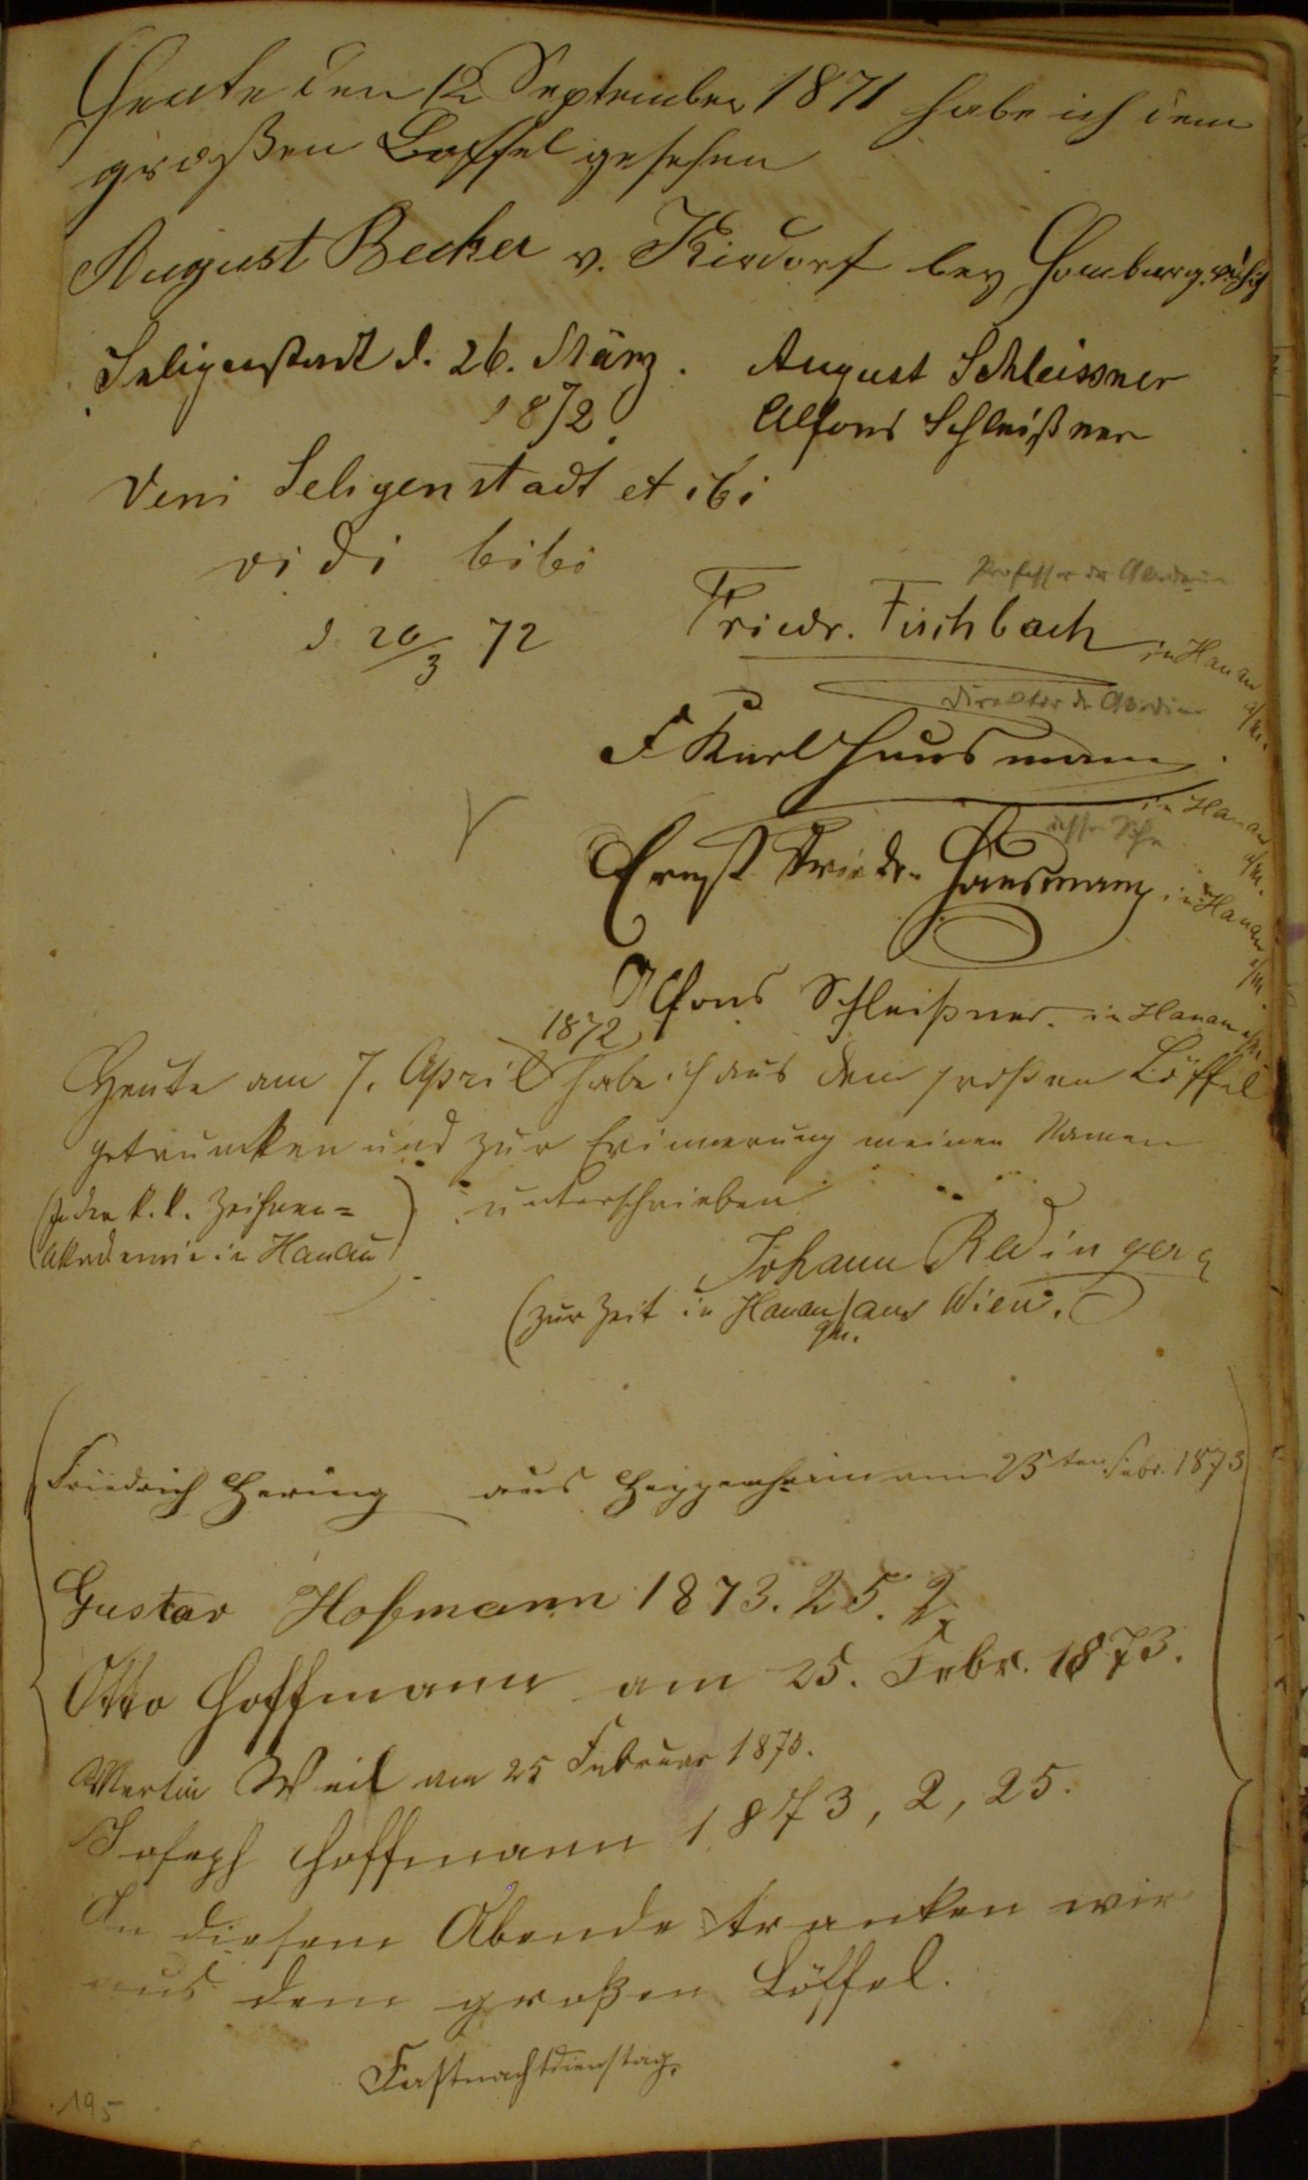 Heute den 12 September 1871 habe ich dem
großen Loffel gesehen
August Becker v. Kirdorf bey Homburg v. d. H.
Seligenstadt d. 26. März. August Schleissner
1872. Alfons Schleißner
Veni Seligenstadt et ibi
vidi bibi
d. 26/3 72
Professor der Akademie
Friedr. Fischbach in Hanau a/M.
Direktor der Akademie
F Karl Hausmann
in Hanau a/M.
dessen Sohn
Ernst Friedr. Hausmann in Hanau a/M.
Alfons Schleißner. in Hanau a/M
1872
Heute am 7. April habe ich aus dem großen Löffel
getruncken und zur Erinnerung meinen Namen
unterschrieben
(In der k. k. Zeichnen=
Akademie in Hanau)
Johann Radinger
(zur Zeit in Hanau a/M.) aus Wien.
Friedrich Hering aus Heppenheim am 25ten Febr. 1873
Gustav Hofmann 1873. 25. 2.
Otto Hoffmann am 25. Febr. 1873.
Martin Weil am 25 Februar 1873.
Joseph Hoffmann 1873, 2, 25.
An diesem Abende tranken wir
aus dem großen Löffel.
Fastnachtdienstag.
195